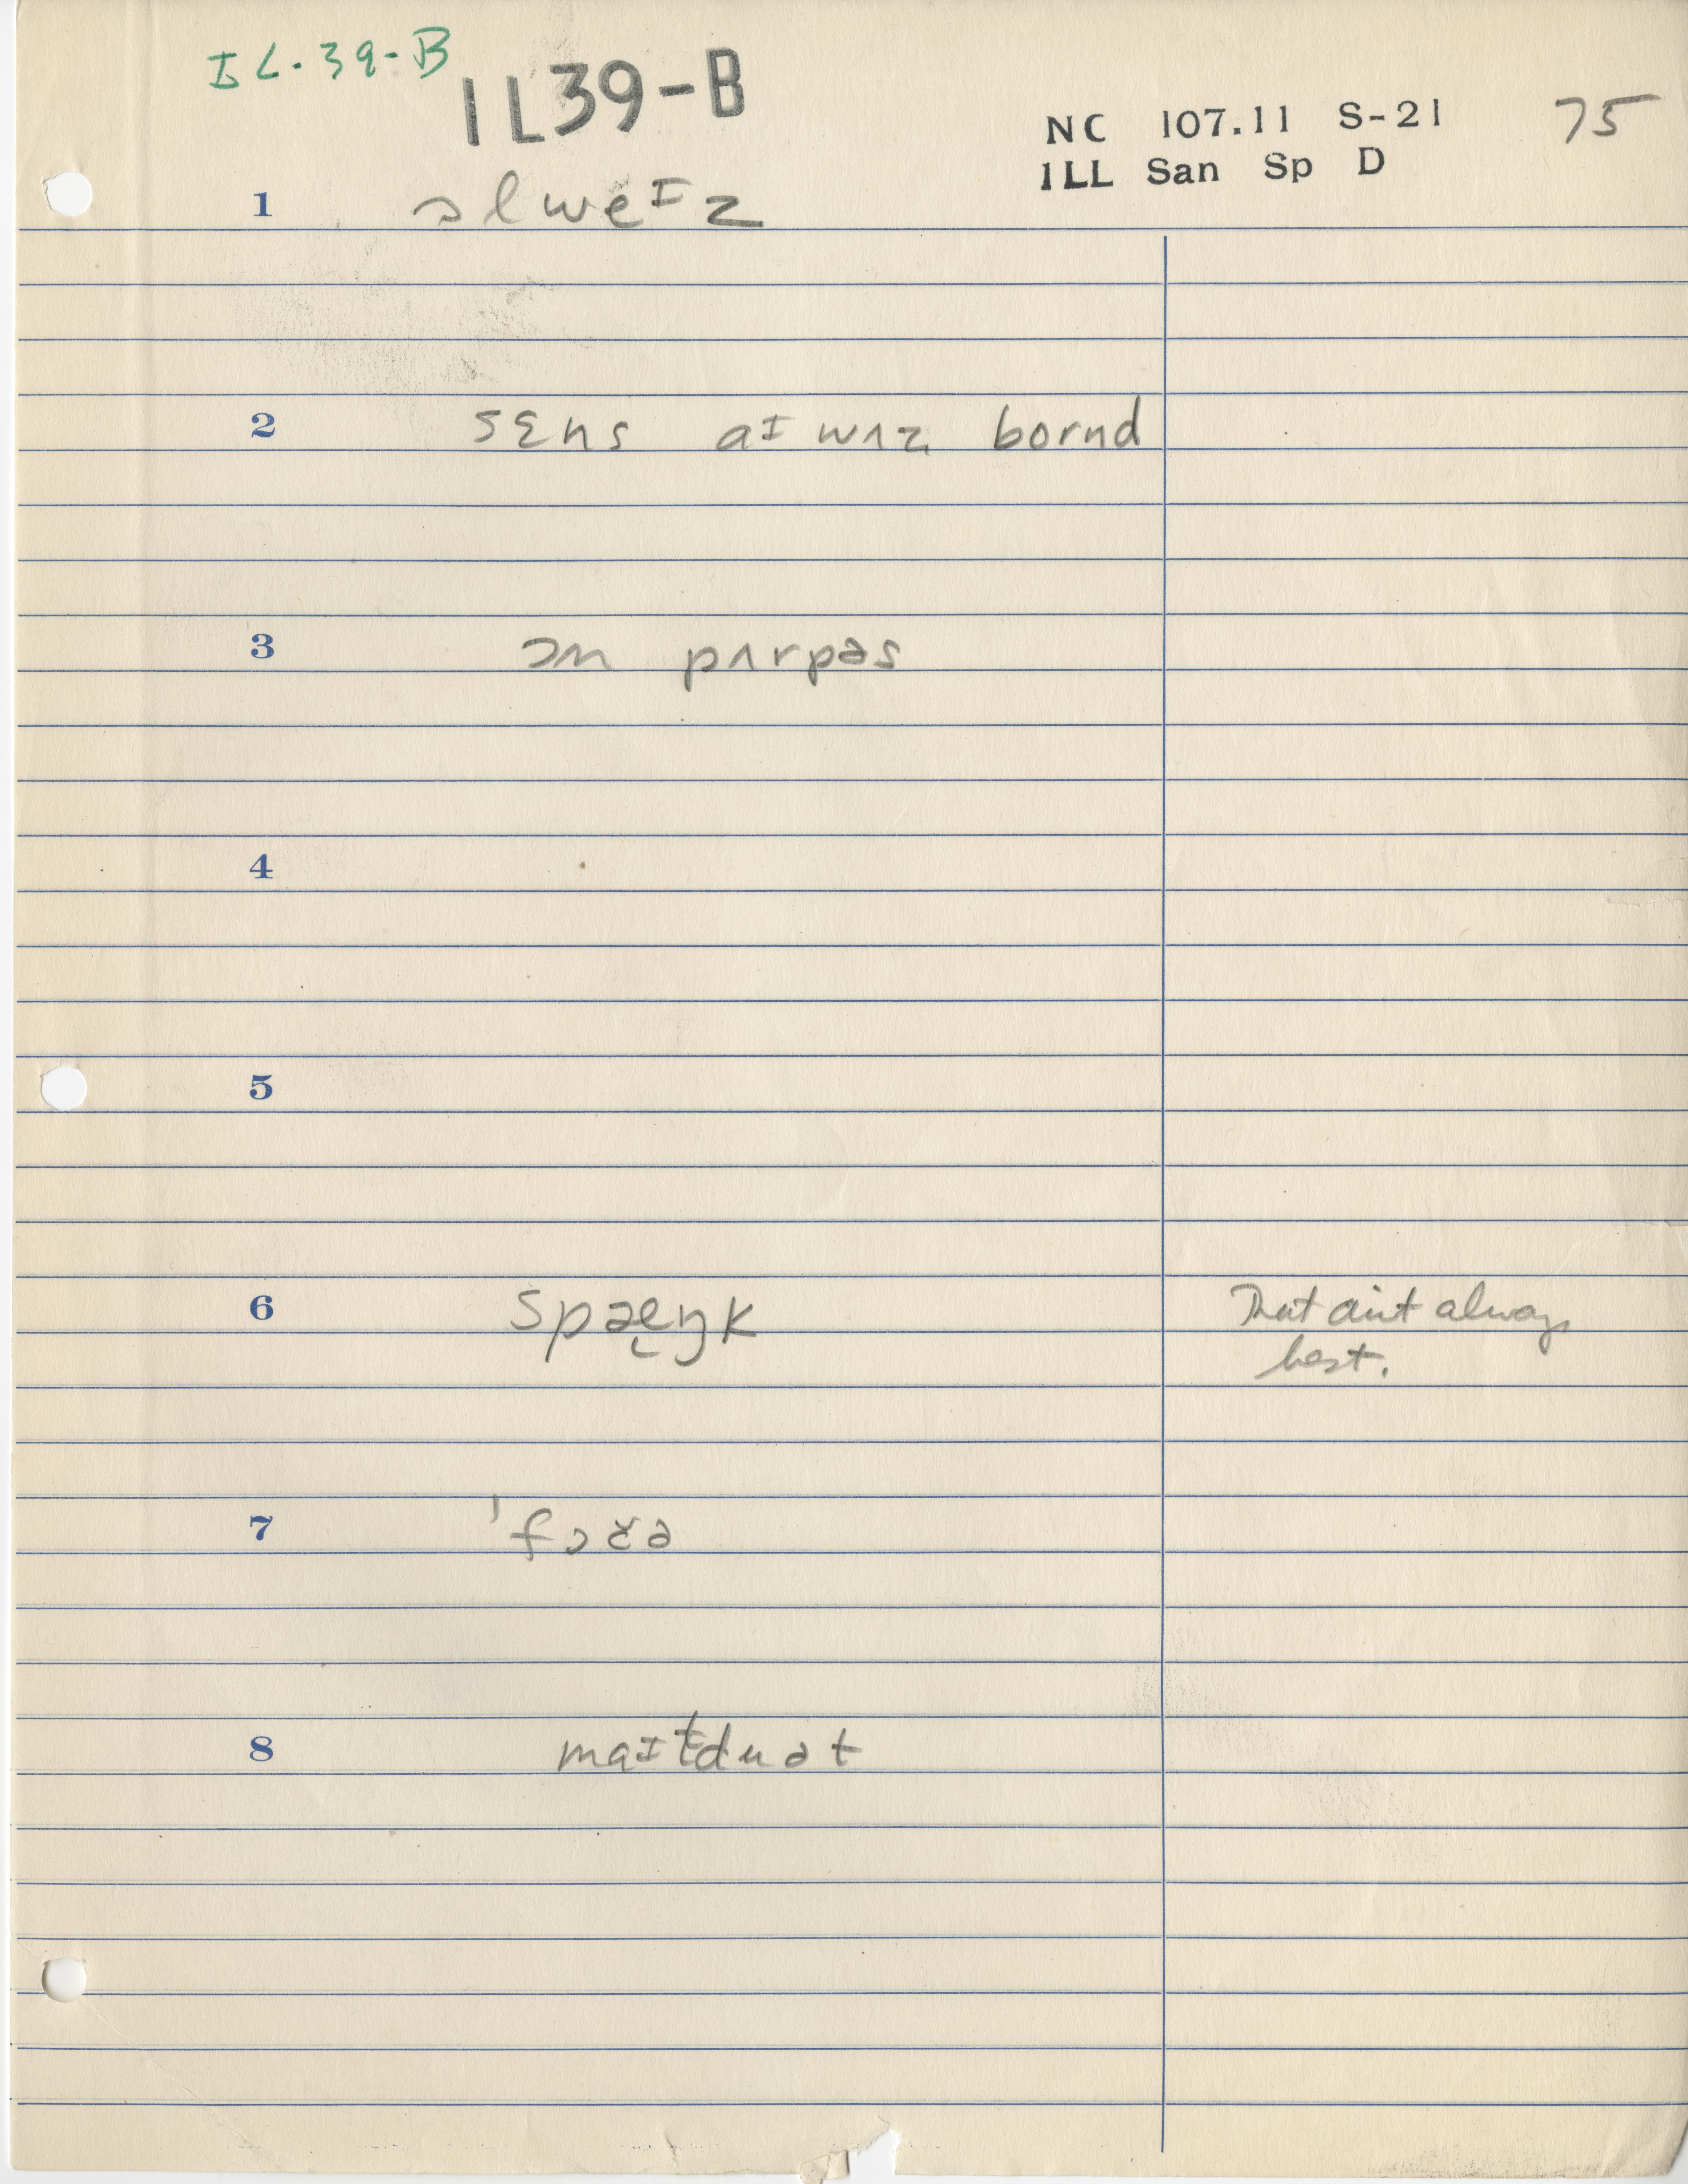 IL-39-B
IL39-B
NC 107.11 S-21 75
ILL San Sp D
1 ɔlweᴵz
2 sɛns aᴵ wʌz bornd
3 ɔn pʌrpəs
4
5
6 spæɛŋk That aint always
best.
7 'fɔɚə
8 maᴵt